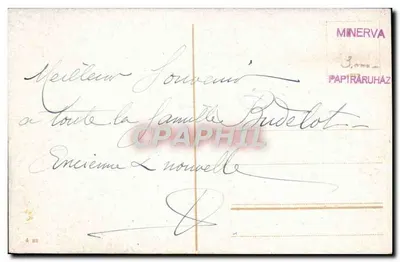 MINERVA
PAPIRÁRUHÁZ
Meilleur Souvenir
a toute la famille Budelot
Encienne & nouvelle
CPAPHIL